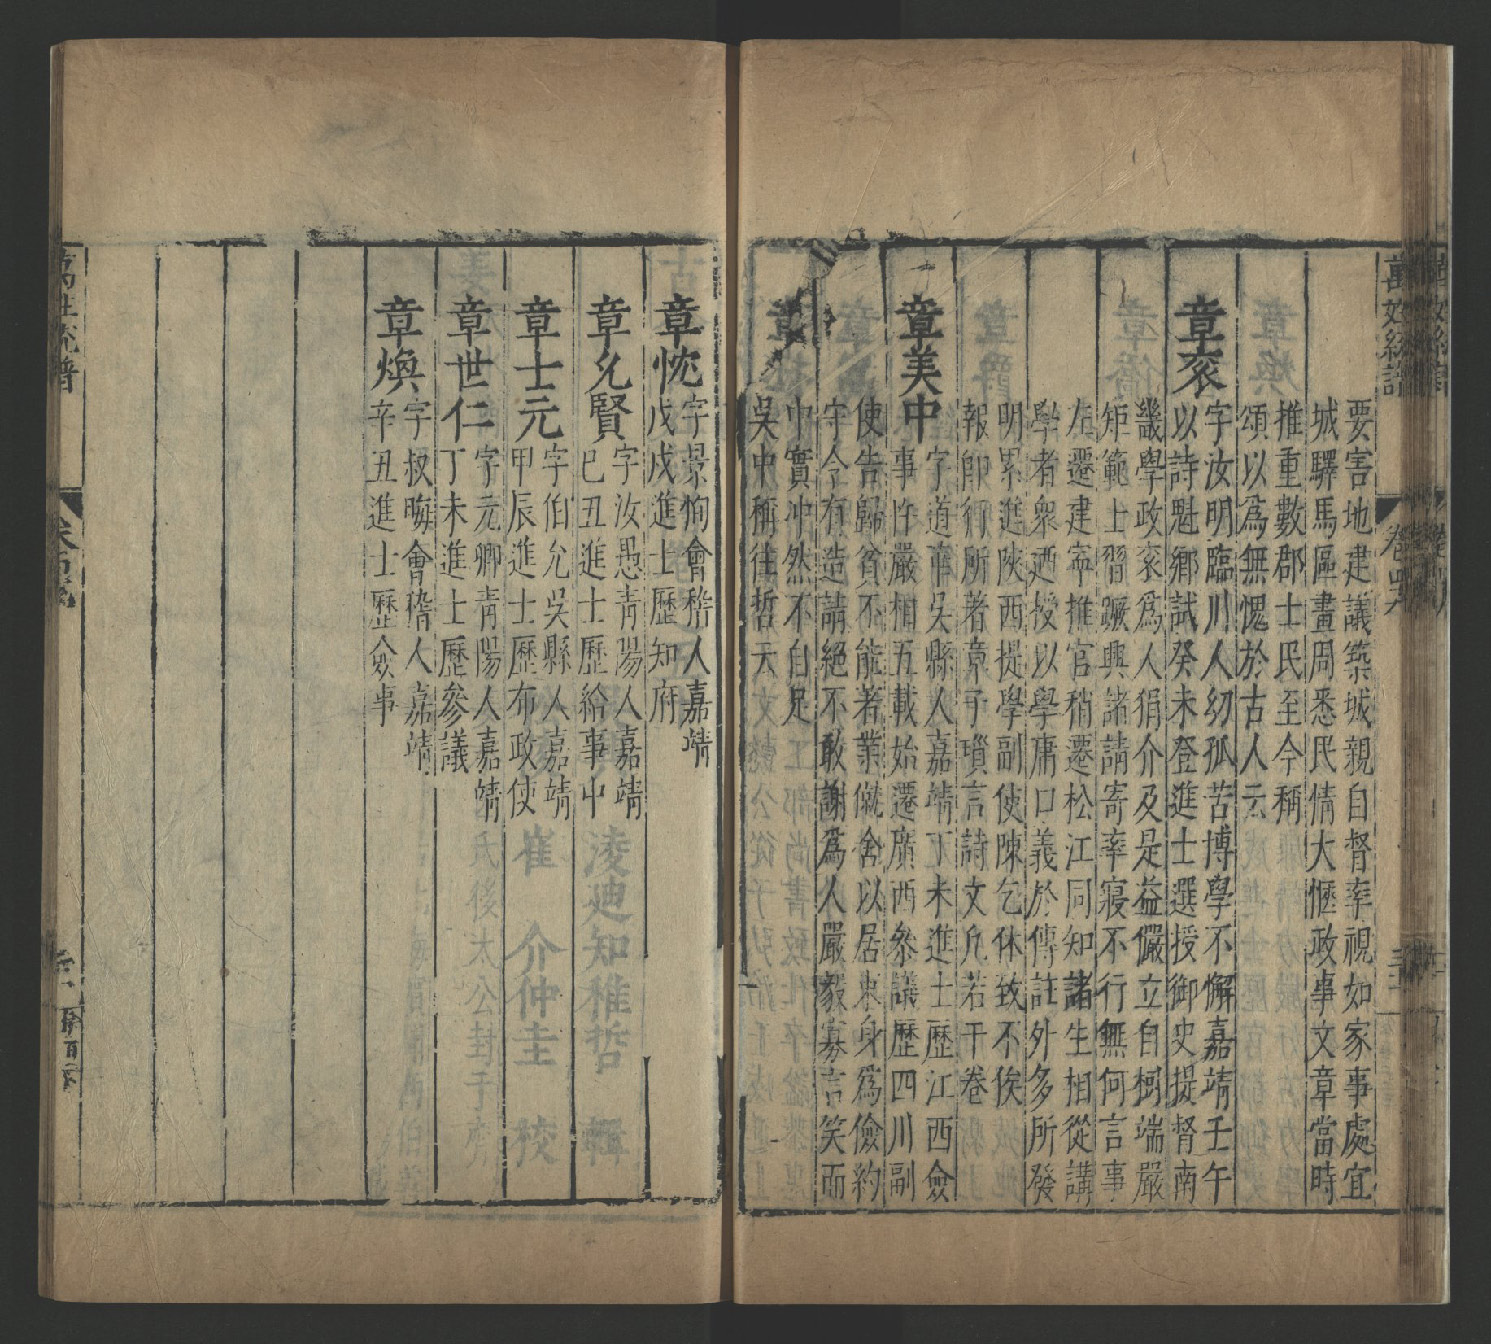 要害地建議築城親自督率視如家事處宜
城驛馬區畫周悉民情大愜政事文章當時
推重數郡士民至今稱
頌以為無愧於古人云
章袞
字汝明臨川人幼孤苦博學不懈嘉靖壬午
以詩魁鄉試癸未登進士選授御史提督南
畿學政袞為人狷介及是益儼立自樹端嚴
矩範士習蹶興諸請寄率寢不行無何言事
左遷建寧推官稍遷松江同知諸生相從講
學者衆廼授以學庸口義於傳註外多所發
明累進陝西提學副使陳乞休致不俟
報即行所著章子瑣言詩文凡若干卷
章美中
字道華吳縣人嘉靖丁未進士歷江西僉
事忤嚴相五載始遷廣西參議歷四川副
使告歸貧不能著業僦舍以居束身為儉約
守令有造請絕不敢謝為人嚴毅寡言笑而
中實沖然不自足
吳中稱往哲云
章忱
字景恂會稽人嘉靖
戊戌進士歷知府
章允賢
字汝愚青陽人嘉靖
己丑進士歷給事中
章士元
字伯允吳縣人嘉靖
甲辰進士歷布政使
章世仁
字元卿青陽人嘉靖
丁未進士歷參議
章煥
字叔晦會稽人嘉靖
辛丑進士歷僉事